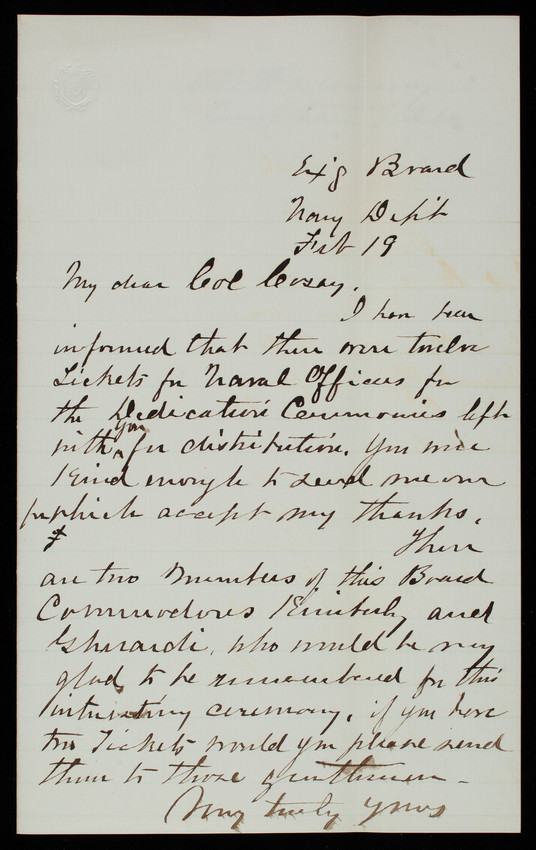 Ex'g Board
Navy Dep't
Feb 19
My dear Col Casey.
I have been
informed that there were twelve
Tickets for Naval Officers for
the Dedication Ceremonies left
with you for distribution. You were
kind enough to send me one
for which accept my thanks.
There
are two members of this Board
Commodores Kimberly and
Gherardi, who would be very
glad to be remembered for this
interesting ceremony, if you have
two Tickets would you please send
them to those gentlemen -
Very truly yours